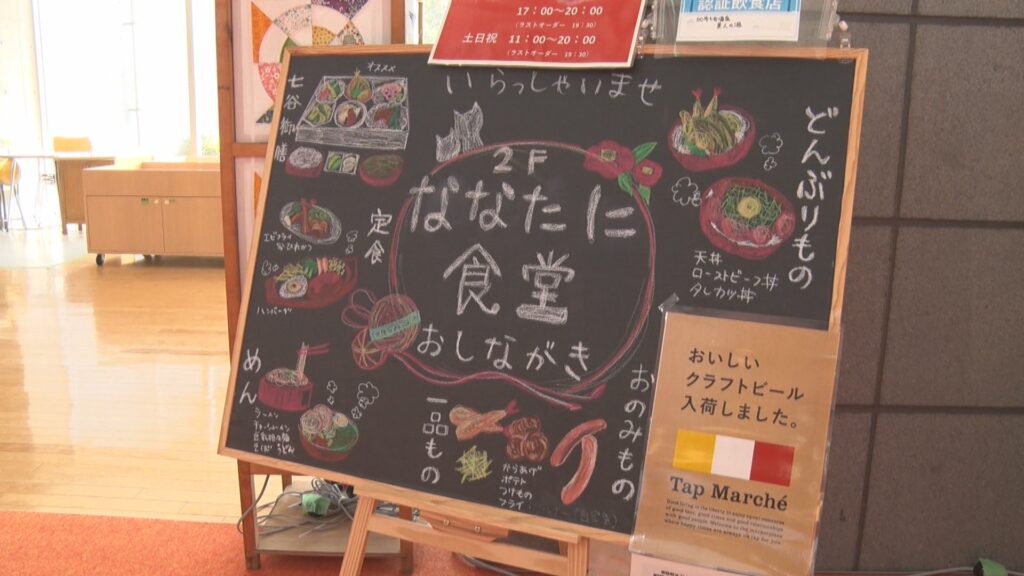 17:00〜20:00
(ラストオーダー 19:30)
土日祝 11:00〜20:00
(ラストオーダー 19:30)
認証飲食店
いらっしゃいませ
オススメ
七谷御膳
2F
ななたに
食堂
おしながき
定食
ハンバーグ
めん
ラーメン
どんぶりもの
天丼
ローストビーフ丼
タレカツ丼
一品もの
からあげ
ポテト
つけもの
フライ
おのみもの
おいしい
クラフトビール
入荷しました。
Tap Marché